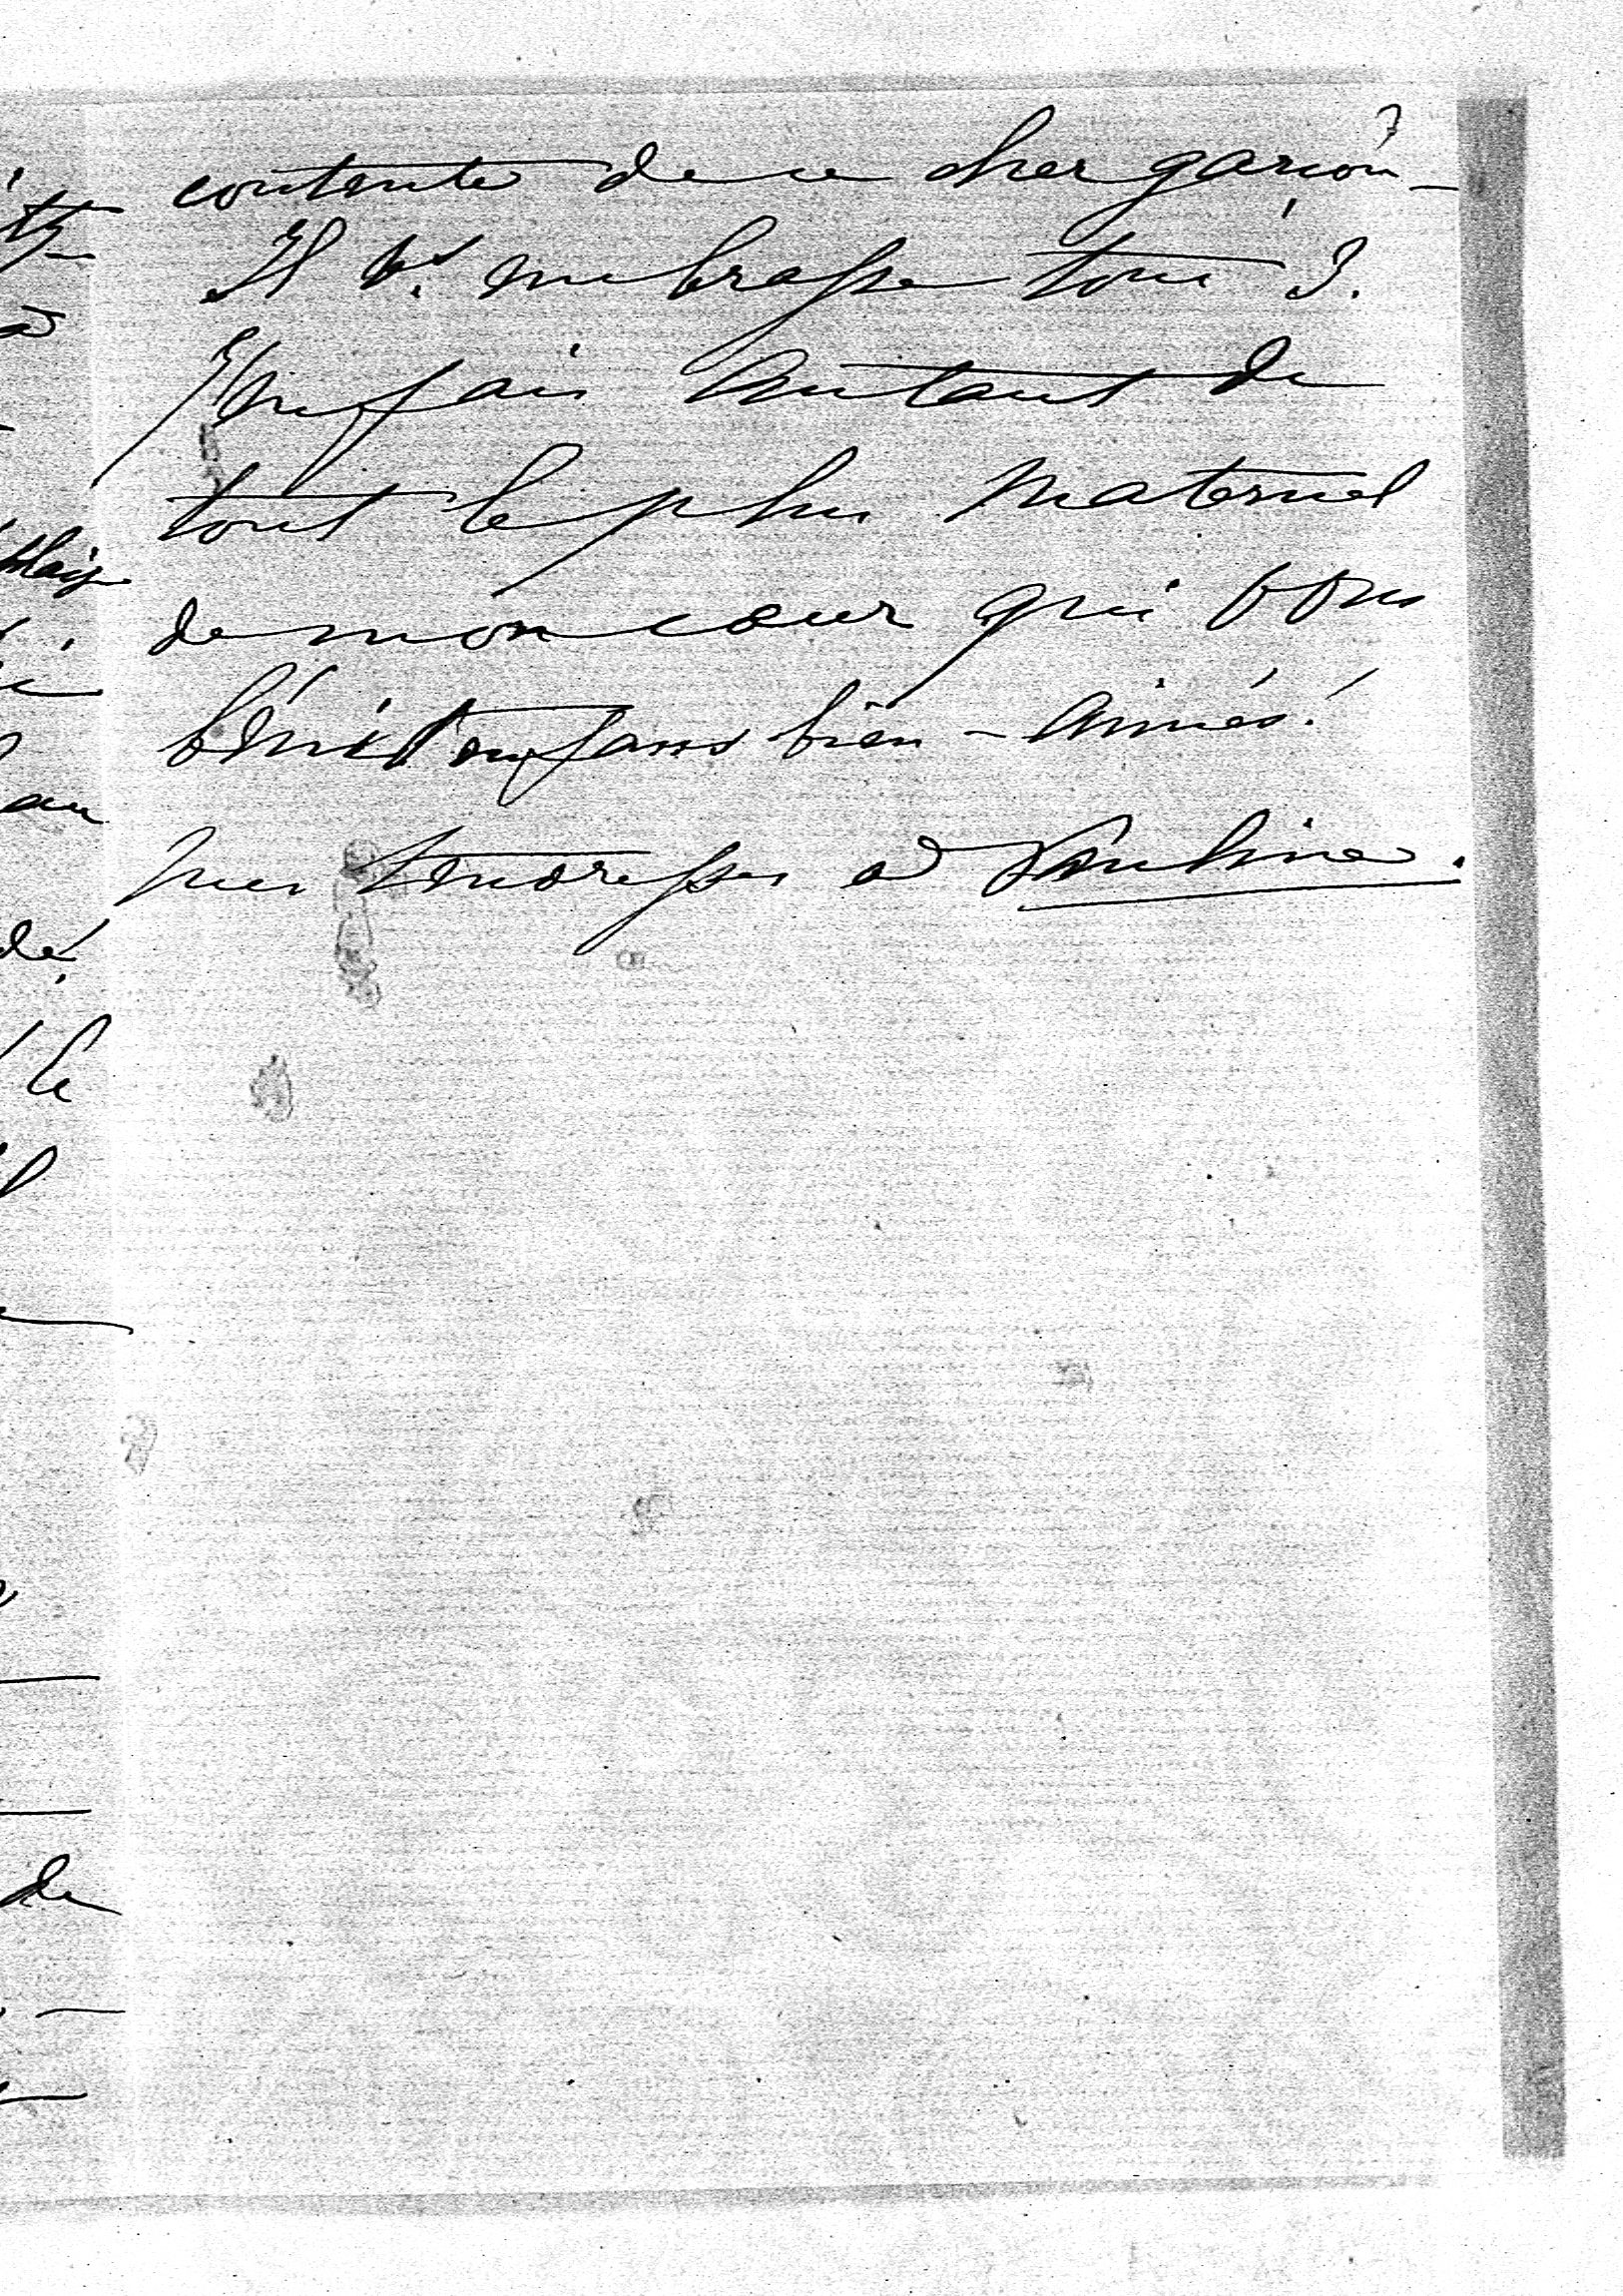 contente de ce cher garçon —
Il vs embrasse tous 3.
J'en fais autant du
tout le plus maternel
de mon cœur qui vous
bénit enfans bien-aimés!
mes tendresses à Pauline.
au
dé!
le
de